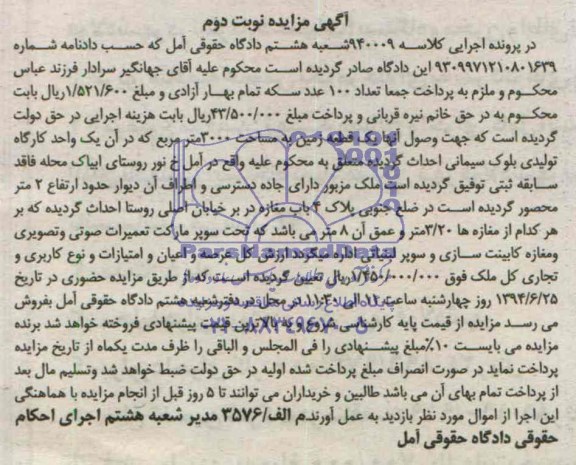 آگهی مزایده نوبت دوم
در پرونده اجرایی کلاسه ۹۴۰۰۰۹شعبه هشتم دادگاه حقوقی آمل که حسب دادنامه شماره
۹۳۰۹۹۷۱۲۱۰۸۰۱۶۳۹ این دادگاه صادر گردیده است محکوم علیه آقای جهانگیر سرادار فرزند عباس
محکوم و ملزم به پرداخت جمعا تعداد ۱۰۰ عدد سکه تمام بهار آزادی و مبلغ ۱/۵۲۱/۶۰۰ریال بابت
محکوم به در حق خانم نیره قربانی و پرداخت مبلغ ۴۳/۵۰۰/۰۰۰ریال بابت هزینه اجرایی در حق دولت
گردیده است که جهت وصول آنها یک قطعه زمین به مساحت ۳۰۰۰متر مربع که در آن یک واحد کارگاه
تولیدی بلوک سیمانی احداث گردیده متعلق به محکوم علیه واقع در آمل خ نور روستای ابیاک محله فاقد
سابقه ثبتی توقیف گردیده است ملک مزبور دارای جاده دسترسی و اطراف آن دیوار حدود ارتفاع ۲ متر
محصور گردیده است در ضلع جنوبی پلاک ۴ باب مغازه در بر خیابان اصلی روستا احداث گردیده که بر
هر کدام از مغازه ها ۳/۲۰متر و عمق آن ۸ متر می باشد که تحت سوپر مارکت تعمیرات صوتی وتصویری
ومغازه کابینت سازی و سوپر لبنیاتی اداره میگردد ارزش کل عرصه و اعیان و امتیازات و نوع کاربری و
تجاری کل ملک فوق ریال تعیین گردیده است که از طریق مزایده حضوری در تاریخ
۱۳۹۴/۶/۲۵ روز چهارشنبه ساعت ۱۱ الی ۱۱:۳۰ در محل در دفترشعبه هشتم دادگاه حقوقی آمل بفروش
می رسد مزایده از قیمت پایه کارشناسی شروع و به بالاترین قیمت پیشنهادی فروخته خواهد شد برنده
مزایده می بایست ۱۰٪مبلغ پیشنهادی را فی المجلس و الباقی را ظرف مدت یکماه از تاریخ مزایده
پرداخت نماید در صورت انصراف مبلغ پرداخت شده اولیه در حق دولت ضبط خواهد شد وتسلیم مال بعد
از پرداخت تمام بهای آن می باشد طالبین و خریداران می توانند تا ۵ روز قبل از انجام مزایده با هماهنگی
این اجرا از اموال مورد نظر بازدید به عمل آورند.م الف/۳۵۷۶ مدیر شعبه هشتم اجرای احکام
حقوقی دادگاه حقوقی آمل
ParsNamadData